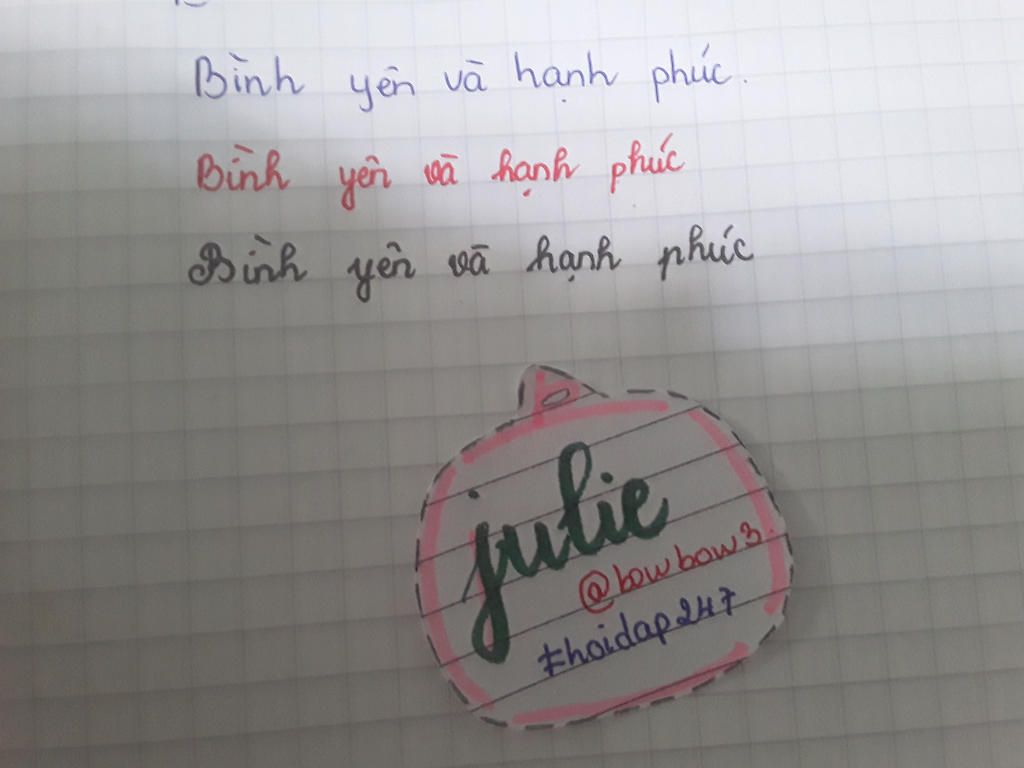 Bình yên và hạnh phúc.
Bình yên và hạnh phúc
Bình yên và hạnh phúc
julie
@bowbow3.
#hoidap247